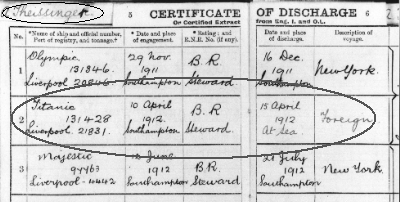 Theissinger
5 CERTIFICATE OF DISCHARGE 6
Or Certified Extract from Eng. 1. and O.L.
No. *Name of ship and official number, Port of registry, and tonnage.† *Date and place of engagement. *Rating; and R.N.E. No. (if any). Date and place of discharge. Description of voyage.
1 Olympic 29 Nov. B.R. 16 Dec. New York.
131346. 1911 1911
Liverpool Southampton Steward Southampton
2 Titanic 10 April B.R. 15 April Foreign
131428 1912 1912
Liverpool. 21831. Southampton Steward. At Sea
3 Majestic June B.R. 21 July New York
97763 1912 1912
Liverpool Southampton Steward Southampton